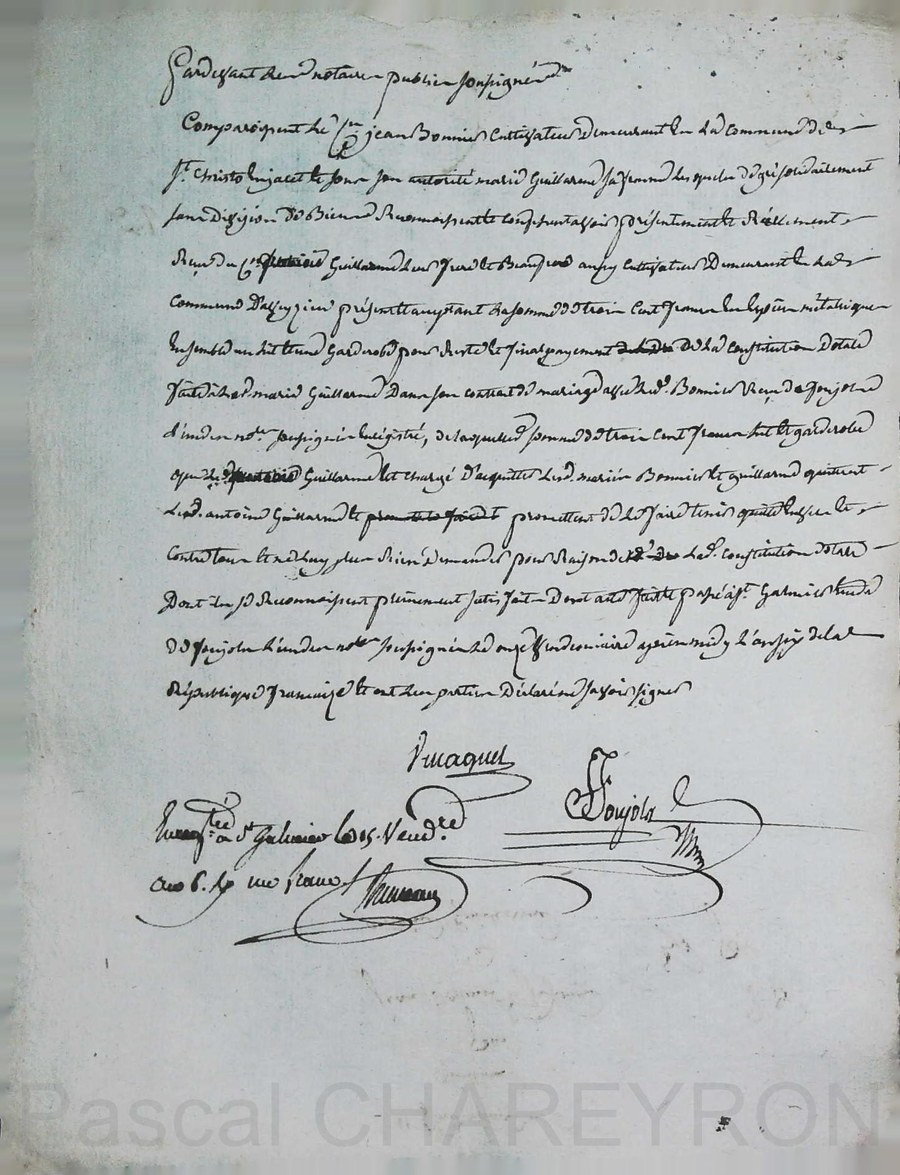 Pardevant le nre notaire public soussigné
Comparoissent le cn jean Bonnier cultivateur demeurant en la commune de
St. Christo en jarret et sous son autorité marie Guillarme sa femme lesquels de gré solidairement
sans division de Biens Reconnoissent et confessent avoir présentement et Réellement
Reçu du cn Guillarme leur frere et Beaufrere aussy cultivateur demeurant en la
commune d'aveyzieu présent et acceptant la somme de trois cent francs en espèces métalliques
ensemble un lit et une Garderobe pour Reste et final payement de la constitution dotale
faite à led. marie Guillarme dans son contrat de mariage avec led. Bonnier Reçu de Joujols
l'un des nores. soussignés enregistré, de laquelle somme de trois cent francs lit et garderobe
que led. Guillarme est chargé d'acquitter lesd. mariés Bonnier et guillarme quittent
led. antoine Guillarme et promettent de le faire tenir quitte envers et
contre tous et ne luy plus Rien demander pour Raison de lad. constitution dotale
Dont ils se Reconnoissent pleinement satisfait Dont acte fait et passé à St. Galmier étude
de Joujols l'un des nores soussignés le onze vendemiaire après midy l'an six de la
République française et ont les parties déclaré ne savoir signer
Vinaquet
Joujols
Enregistré à St Galmier le 15. Vend.re
an 6. Rç un franc
Pascal CHAREYRON